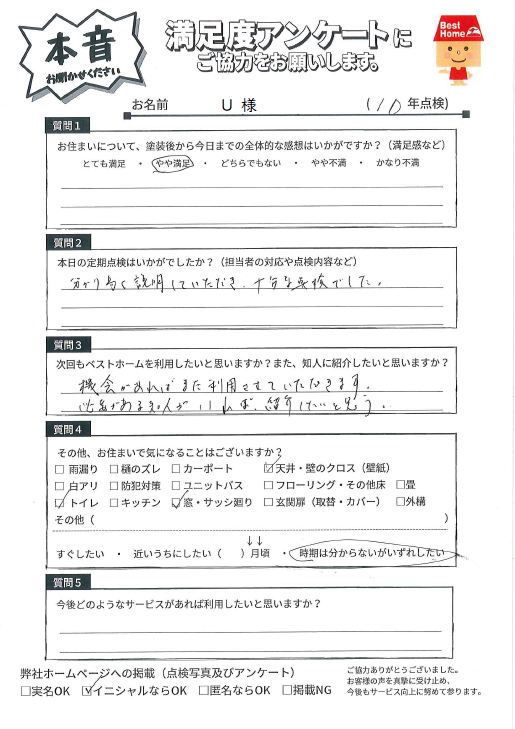 本音
お聞かせください
満足度アンケートに
ご協力をお願いします。
Best Home
お名前 U 様 (10年点検)
質問１
お住まいについて、塗装後から今日までの全体的な感想はいかがですか？（満足感など）
とても満足 ・ やや満足 ・ どちらでもない ・ やや不満 ・ かなり不満
質問２
本日の定期点検はいかがでしたか？（担当者の対応や点検内容など）
分かり易く説明していただき、十分な点検でした。
質問３
次回もベストホームを利用したいと思いますか？また、知人に紹介したいと思いますか？
機会があればまた利用させていただきます。
必要がある知人がいれば、紹介したいと思う。
質問４
その他、お住まいで気になることはございますか？
□ 雨漏り □ 樋のズレ □ カーポート ☑ 天井・壁のクロス（壁紙）
□ 白アリ □ 防犯対策 □ ユニットバス □ フローリング・その他床 □ 畳
☑ トイレ □ キッチン ☑ 窓・サッシ廻り □ 玄関扉（取替・カバー） □ 外構
その他（ ）
↓↓
すぐしたい ・ 近いうちにしたい（ ）月頃 ・ 時期は分からないがいずれしたい
質問５
今後どのようなサービスがあれば利用したいと思いますか？
弊社ホームページへの掲載（点検写真及びアンケート）
□実名OK ☑イニシャルならOK □匿名ならOK □掲載NG
ご協力ありがとうございました。
お客様の声を真摯に受け止め、
今後もサービス向上に努めて参ります。